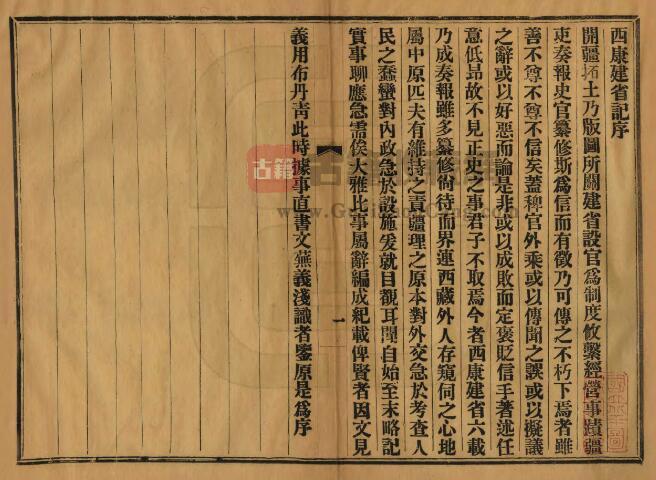 西康建省記序
開疆拓土乃版圖所關建省設官爲制度攸繫經營事蹟疆
吏奏報史官纂修斯爲信而有徵乃可傳之不朽下焉者雖
善不尊不尊不信矣蓋稗官外乘或以傳聞之誤或以擬議
之辭或以好惡而論是非或以成敗而定褒貶信手著述任
意低昂故不見正史之事君子不取焉今者西康建省六載
乃成奏報雖多纂修尙待而界連西藏外人存窺伺之心地
屬中原匹夫有維持之責疆理之原本對外交急於考查人
民之蠢蠻對內政急於設施爰就目覩耳聞自始至末略記
實事聊應急需俟大雅比事屬辭編成紀載俾賢者因文見
義用布丹靑此時據事直書文蕪義淺識者鑒原是爲序
一
古籍